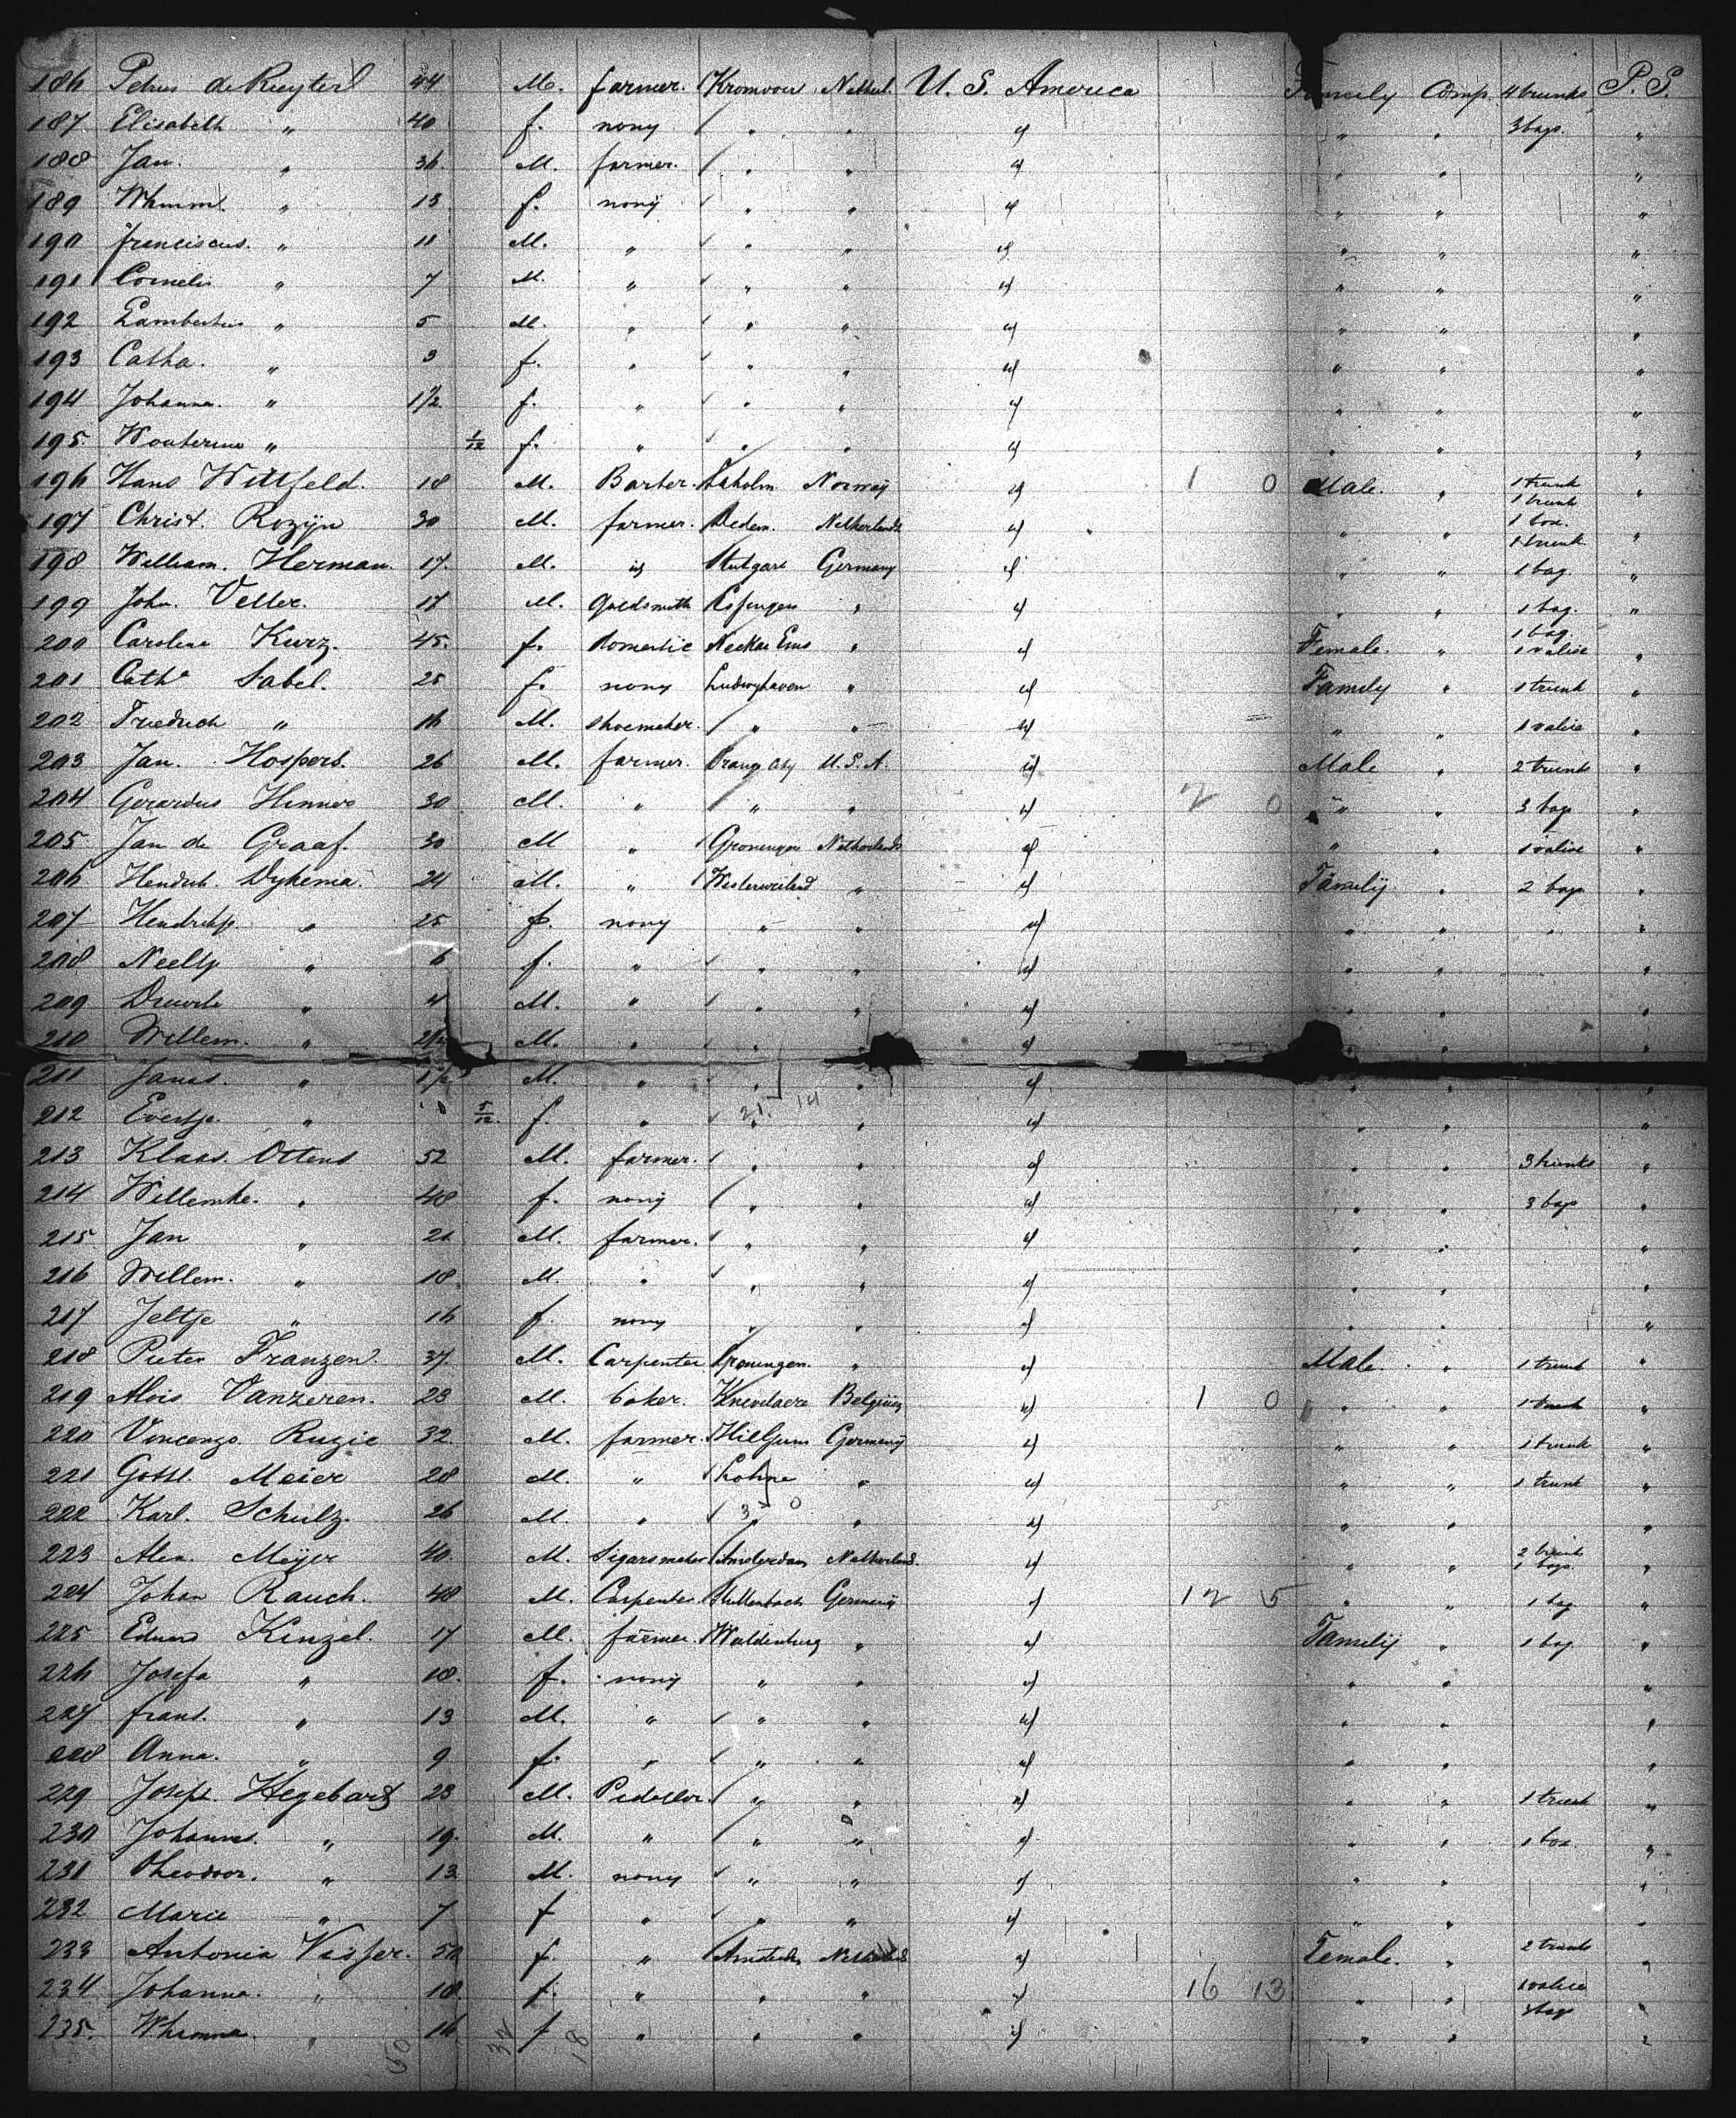 186 Petrus de Ruyter 44 M. farmer. Kromvoir Netherl. U. S. America Family Comp. 4 trunks P. S.
187 Elisabeth " 40 f. nony " " " " " 3 bags. "
188 Jan. " 36. M. farmer. " " " " " "
189 " 13 f. nony " " " " " "
190 franciscus. " 11 M. " " " " " " "
191 Cornelis " 7 M. " " " " " " "
192 Lambertus " 5 M. " " " " " " "
193 Catha. " 3 f. " " " " " " "
194 Johanna. " 1 1/2 f. " " " " " " "
195. Wouterina " 1/12 f. " " " " " " "
196 Hans Wittfeld. 18 M. Barber. Laholm Norway " 1 0 Male. " 1 trunk "
197 Christ. Rozijn 30 M. farmer. Dedem. Netherlands " " " 1 trunk 1 box. "
198 William. Herman. 17. M. " Stutgart Germany " " " 1 trunk 1 bag. "
199 John. Veller. 17 M. Goldsmith " " " " 1 bag. "
200 Carolina Kurz. 45. f. Domestic Neckar Ems " " Female. " 1 bag. 1 valise "
201 Catha Sabel. 25 f. nony Ludwighaven " " Family " 1 trunk "
202 Friedrich " 16 M. Shoemaker. " " " " " 1 valise "
203 Jan. Hospers. 26 M. farmer. Orange City U.S.A. " Male " 2 trunks "
204 Gerardus 30 M. " " " " 2 0 " " 3 bags "
205. Jan de Graaf. 30 M " Groningen Netherlands " " " 1 valise "
206 Hendrik. Dykema. 24 M. " " " Family " 2 bags "
207 " 25 f. nony " " " " " " "
208 Neeltje " 6 f. " " " " " " "
209 " 4 M. " " " " " " "
210 Willem. " 2 1/2 M. " " " " " " "
211 " 1 1/2 M. " " " " " " "
212 Evertje. " 5/12. f. " " 21. 14 " " " " "
213 Klaas. Ottens 52 M. farmer. " " " " " 3 trunks "
214 Willemke. " 48 f. nony " " " " " 3 bags "
215 Jan " 21 M. farmer. " " " " " "
216 Willem. " 18. M. " " " " " " "
217 Jeltje " 16 f. nony " " " " " "
218 Pieter Franzen. 37. M. Carpenter Groningen. " " Male. " 1 trunk "
219 Alois Vanzeren. 23 M. baker. Belgium " 1 0 " " 1 trunk "
220 Vincenzo. Ruzie 32. M. farmer. Germany " " " 1 trunk "
221 Gottl. Meier 28 M. " Lohne " " " " 1 trunk "
222 Karl. Schulz. 26 M. " 3 0 " " " " "
223 Alex. Meijer 40. M. Sigarsmaker Amsterdam Netherland. " " " 2 trunks 1 bags. "
224 Johan Rauch. 48 M. Carpenter Germany " 12 5 " " 1 bag "
225 Eduard Kinzel. 17 M. farmer. Waldenburg " " Family " 1 bag. "
226 Josefa " 18. f. nony " " " " " "
227 frans. " 13 M. " " " " " " "
228 Anna. " 9 f. " " " " " " "
229 Joseph. Hegebart 23 M. Pedellor. " " " " " 1 trunk "
230 Johannes. " 19. M. " " " " " " 1 box. "
231 Theodoor. " 13 M. nony " " " " " "
232 Marie " 7 f " " " " " " "
233 Antonia Visser. 50 f. " Amsterdm Netherland " Female. " 2 trunks "
234 Johanna. " 18. f. " " " " 16 13 " " 1 valise
235. " 16 f " " " " " " 3 bags "
50 32 18